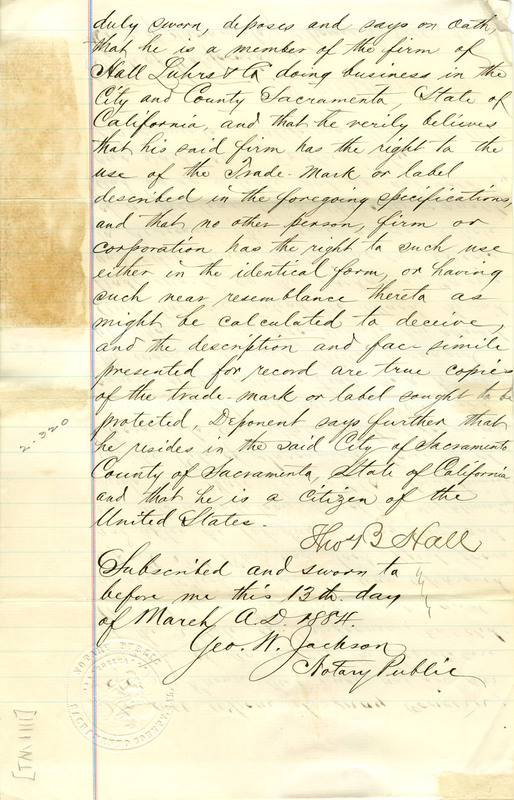 duly sworn, deposes and says on oath,
that he is a member of the firm of
Hall Luhrs & Co doing business in the
City and County Sacramento, State of
California, and that he verily believes
that his said firm has the right to the
use of the Trade-Mark or label
described in the foregoing specifications,
and that no other person, firm or
corporation has the right to such use
either in the identical form, or having
such near resemblance thereto as
might be calculated to deceive,
and the description and fac-simile
presented for record are true copies
of the trade-mark or label sought to be
protected, Deponent says further that
he resides in the said City of Sacramento
County of Sacramento, State of California
and that he is a citizen of the
United States.
Thos B Hall
Subscribed and sworn to
before me this 13th day
of March A.D. 1884.
Geo. W. Jackson
Notary Public
NOTARY PUBLIC
2-320
[TM 1111]